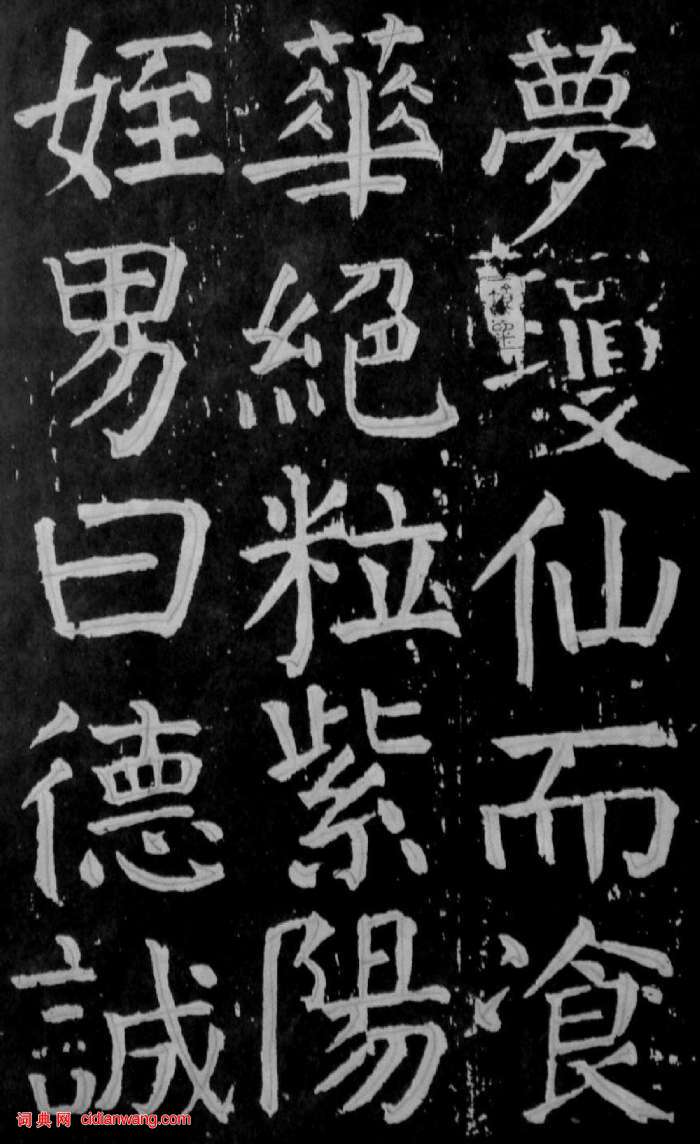 夢瓊仙而飡
華絕粒紫陽
姪男曰德誠
词典网 cidianwang.com